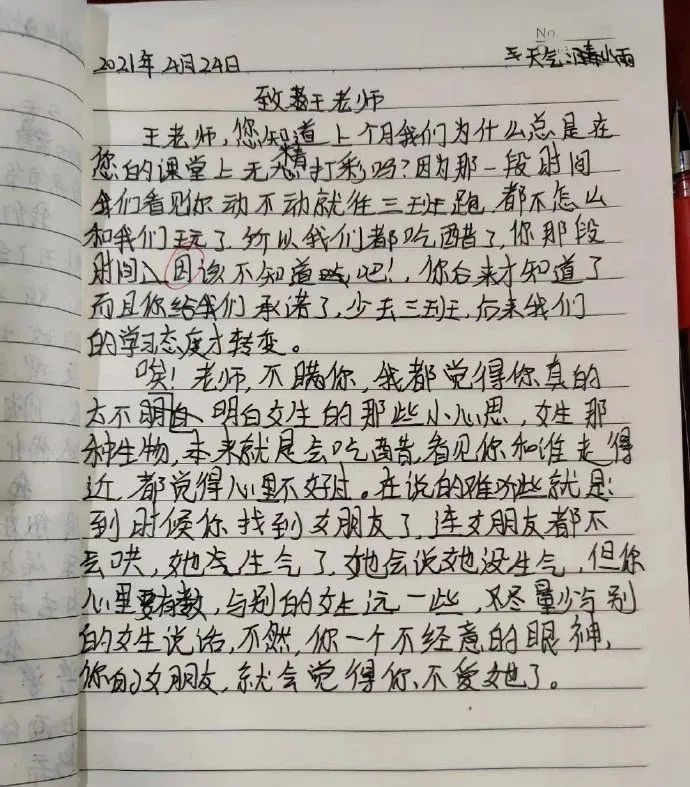 No.
2021年4月24日 天气:小雨
致王老师
王老师,您知道上个月我们为什么总是在
您的课堂上无精打彩吗?因为那一段时间
我们看见你动不动就往三班跑,都不怎么
和我们玩了,所以我们都吃醋了,你那段
时间因该不知道吧!,你后来才知道了
而且你给我们承诺了,少去三班,后来我们
的学习态度才转变。
唉!老师,不瞒你,我都觉得你真的
太不明白女生的那些小心思,女生那
种生物,本来就是会吃醋,看见你和谁走得
近,都觉得心里不好过。在说的难听些就是:
到时候你找到女朋友了,连女朋友都不
会哄,她若生气了,她会说她没生气,但你
心里要有数,与别的女生远一些,又尽量少与别
的女生说话,不然,你一个不经意的眼神,
你的女朋友,就会觉得你不爱她了。